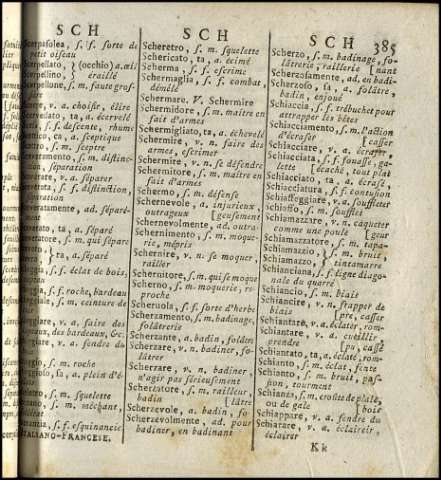 SCH
SCH
SCH 385
Scarpasolea, s. f. sorte de
petit oiseau
(occhio) a. œil
éraillé
s. m. faute gros-
siere
v. a. choisir, élire
ta, a. écervelé
s. f. descente, rhume
ca, a. sceptique
s. m. sceptre
s. m. distinc-
tion, séparation
v. a. séparer
s. f. distinction,
séparation
ad. séparé-
ment
ta, a. séparé
s. m. qui sépare
ta, a. séparé
s. f. éclat de bois,
s. f. roche, bardeau
s. m. ceinture de
v. a. faire des
des bardeaux, &c.
v. a. fendre du
s. m. roche
sa, a. plein d'é-
s. m. squelette
s. m. méchant,
s. f. esquinancie
ITALIANO-FRANCESE.
Scheretro, s. m. squelette
Schericato, ta, a. écimé
Scherma, s. f. escrime
Schermaglia, s. f. combat,
démêlé
Schermare, V. Schermire
Schermidore, s. m. maître en
fait d'armes
Schermigliato, ta, a. échevelé
Schermire, v. n. faire des
armes, escrimer
Schermire, v. n. se défendre
Schermitore, s. m. maître en
fait d'armes
Schermo, s. m. défense
Schernevole, a. injurieux,
outrageux [geusement
Schernevolmente, ad. outra-
Schernimento, s. m. moque-
rie, mépris
Schernire, v. n. se moquer,
railler
Schernitore, s. m. qui se moque
Scherno, s. m. moquerie, re-
proche
Scheruola, s. f. sorte d'herbe
Scherzamento, s. m. badinage,
folâtrerie
Scherzante, a. badin, folâtre
Scherzare, v. n. badiner, fo-
lâtrer
Scherzare, v. n. badiner,
n'agir pas sérieusement
Scherzatore, s. m. railleur,
badin [lâtre
Scherzevole, a. badin, fo-
Scherzevolmente, ad. pour
badiner, en badinant
Scherzo, s. m. badinage, fo-
lâtrerie, raillerie [nant
Scherzosamente, ad. en badi-
Scherzoso, sa, a. folâtre,
badin, enjoué
Schiaccia, s. f. trébuchet pour
attrapper les bêtes
Schiacciamento, s. m. l'action
d'écraser [casser
Schiacciare, v. a. écraser,
Schiacciata, s. f. fouasse, ga-
lette [écaché, tout plat
Schiacciato, ta, a. écrasé,
Schiacciatura, s. f. contusion
Schiaffeggiare, v. a. souffleter
Schiaffo, s. m. soufflet
Schiamazzare, v. n. caqueter
comme une poule [geur
Schiamazzatore, s. m. tapa-
Schiamazzio, } s. m. bruit,
Schiamazzo, } tintamarre
Schianciana, s. f. ligne diago-
nale du quarré
Schiancio, s. m. biais
Schiancire, v. n. frapper de
biais [pre, casser
Schiantare, v. a. éclater, rom-
Schiantare, v. a. cueillir,
prendre [pu, cassé
Schiantato, ta, a. éclaté, rom-
Schianto, s. m. éclat, fente
Schianto, s. m. bruit, pas-
sion, tourment
Schianza, s. m. croûte de plaie,
ou de gale [bois
Schiappare, v. a. fendre du
Schiarare, v. a. éclaircir,
éclairer
Kk